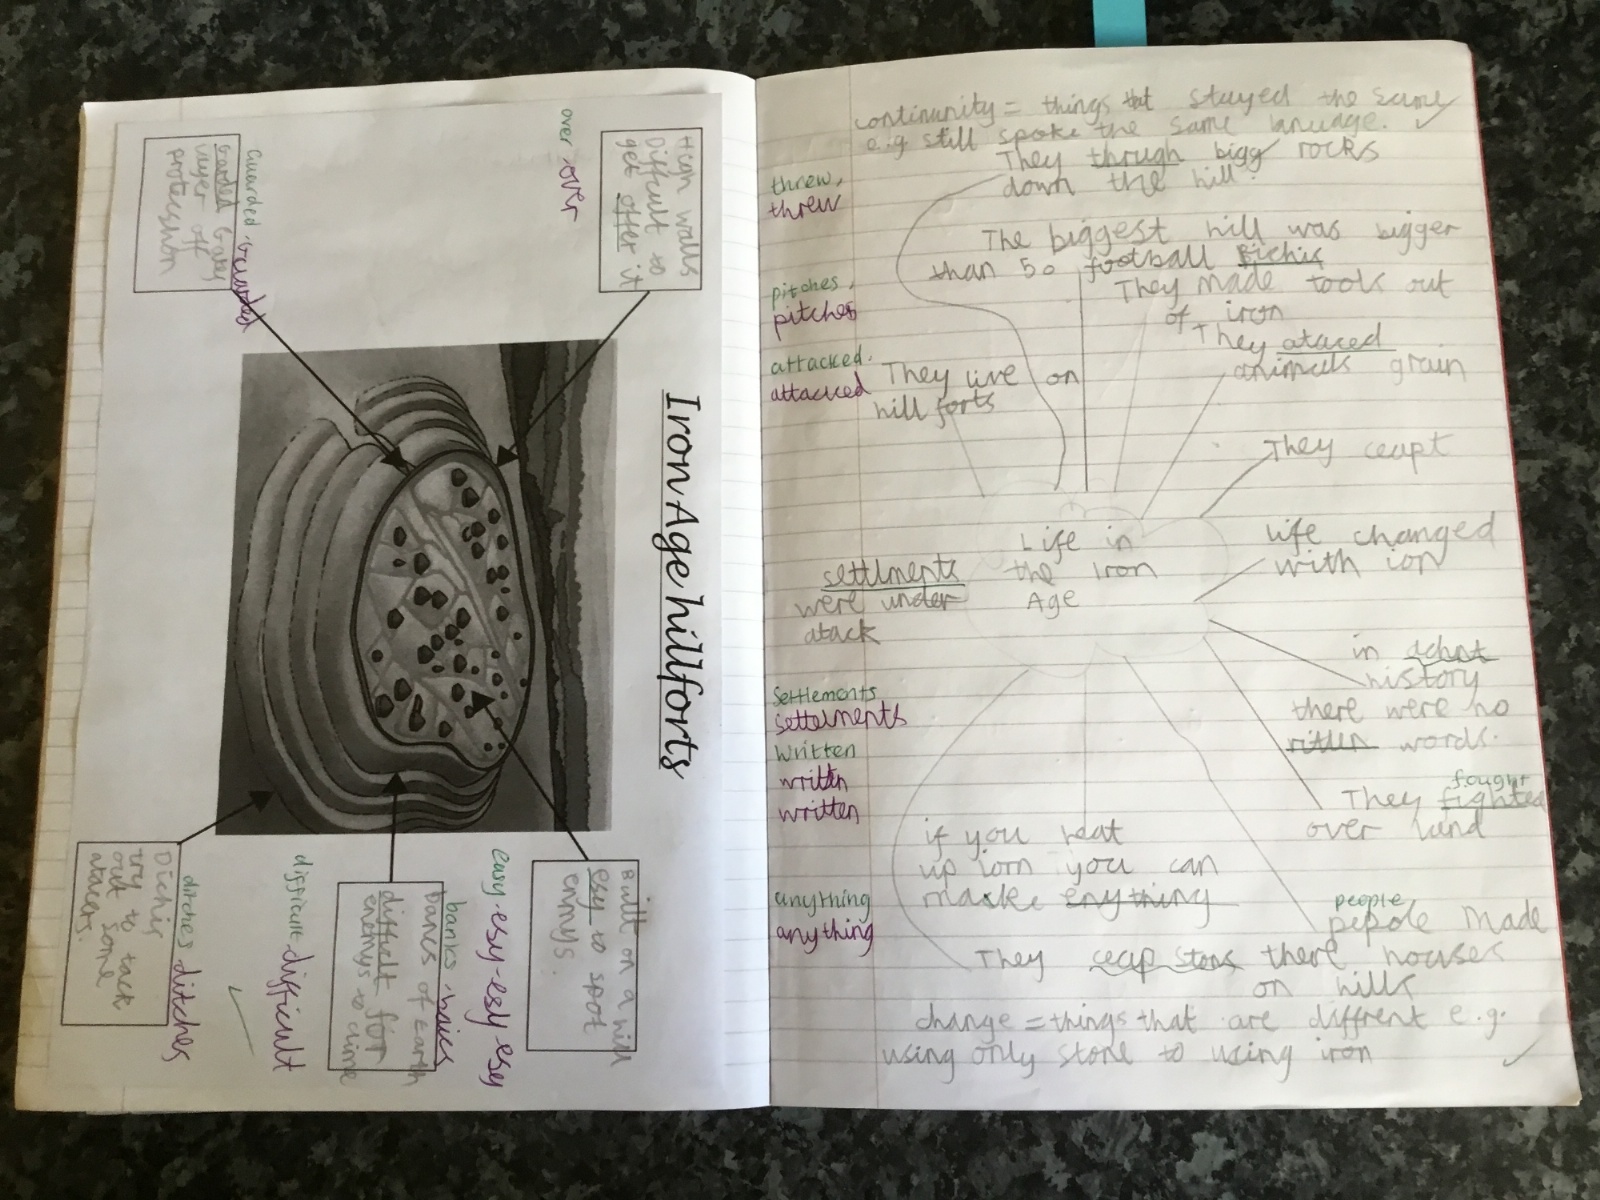 Iron Age hillforts
High walls
Difficult to
get offer it
over - over
Guarded - Guarded
Garded Gates
layer off
protecshon
Built on a hill
esay to spot
enmys.
easy - esy - esdy - esy
banks - baics
Bancs of earth
difficult for
enemys to clime
difficult - difficult
ditches - ditches
Dichis
try to tack
out to some
atacers.
continunity = things that stayed the same
e.g still spoke the same languadge.
They through bigg rocks
down the hill.
threw,
threw
The biggest hill was bigger
than 50 football Bichis
pitches,
pitches
They made tools out
of iron
They ataced
animals grain
attacked.
attacked
They live on
hill forts
They ceapt
Life in
the Iron
Age
life changed
with ion
settlments
were under
atack
in achnt
history
there were no
ritten words.
Settlements
settelments
Written
written
written
fought
They fighted
over land
if you heat
up iorn you can
make enything
anything
anything
people
pepole made
They ceap stors there houses
on hills
change = things that are diffrent e.g.
using only stone to using iron